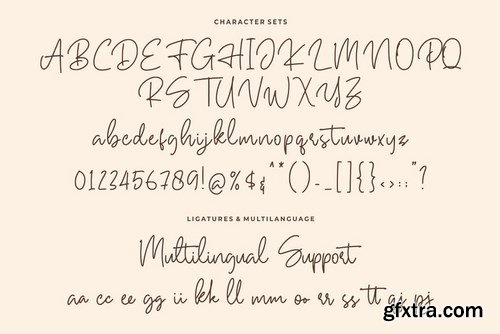 CHARACTER SETS
ABCDEFGHIJKLMNOPQ
RSTUVWXYZ
abcdefghijklmnopqrstuvwxyz
0123456789!@%$& ^*()-_[]{}<>:;"?
LIGATURES & MULTILANGUAGE
Multilingual Support
aa cc ee gg ii kk ll mm oo rr ss tt gj pj
gfxtra.com